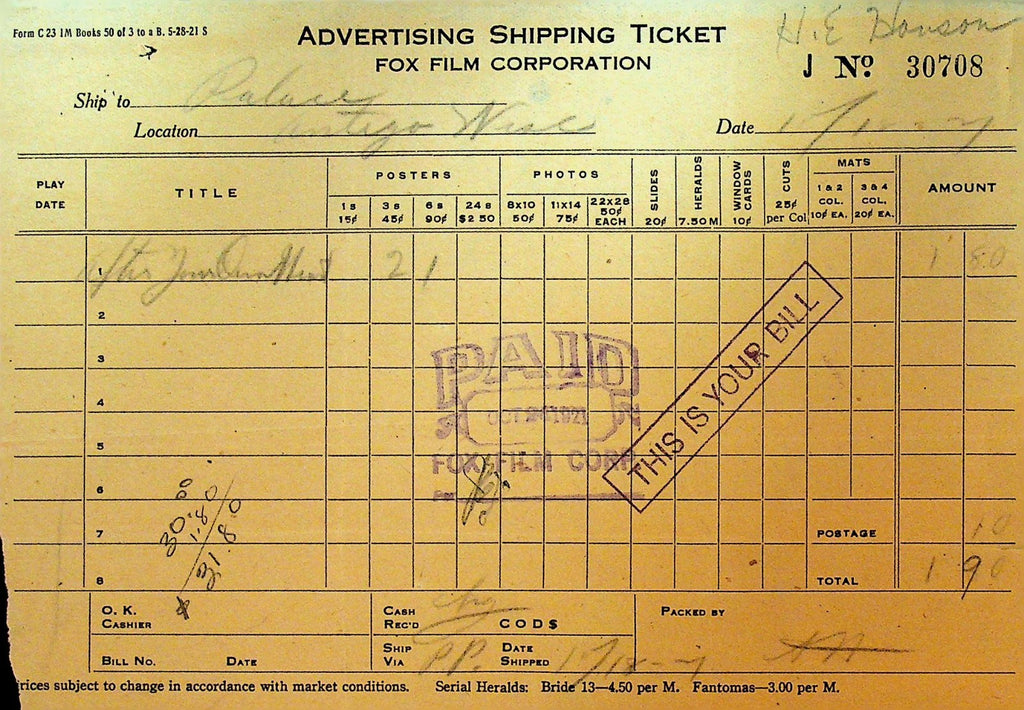 Form C 23 1M Books 50 of 3 to a B. 5-28-21 S
H.E Hanson
ADVERTISING SHIPPING TICKET
FOX FILM CORPORATION
J No 30708
Ship to Palace
Location Antigo Wisc
Date
PLAY DATE
TITLE
POSTERS
1 s 15¢
3 s 45¢
6 s 90¢
24 s $2 50
PHOTOS
8x10 50¢
11x14 75¢
22x28 50¢ EACH
SLIDES 20¢
HERALDS 7.50 M
WINDOW CARDS 10¢
CUTS 25¢ per Col.
MATS
1 & 2 COL. 10¢ EA.
3 & 4 COL. 20¢ EA.
AMOUNT
1 After Your Own Heart 2 1 1 80
2
3
4
5
6
7
8
PAID
OCT 24 1921
FOX FILM CORP.
THIS IS YOUR BILL
30.00
1.80
31.80
POSTAGE 10
TOTAL 1 90
O. K. CASHIER
CASH REC'D
C O D $
PACKED BY
BILL NO.
DATE
SHIP VIA PP.
DATE SHIPPED
rices subject to change in accordance with market conditions. Serial Heralds: Bride 13—4.50 per M. Fantomas—3.00 per M.